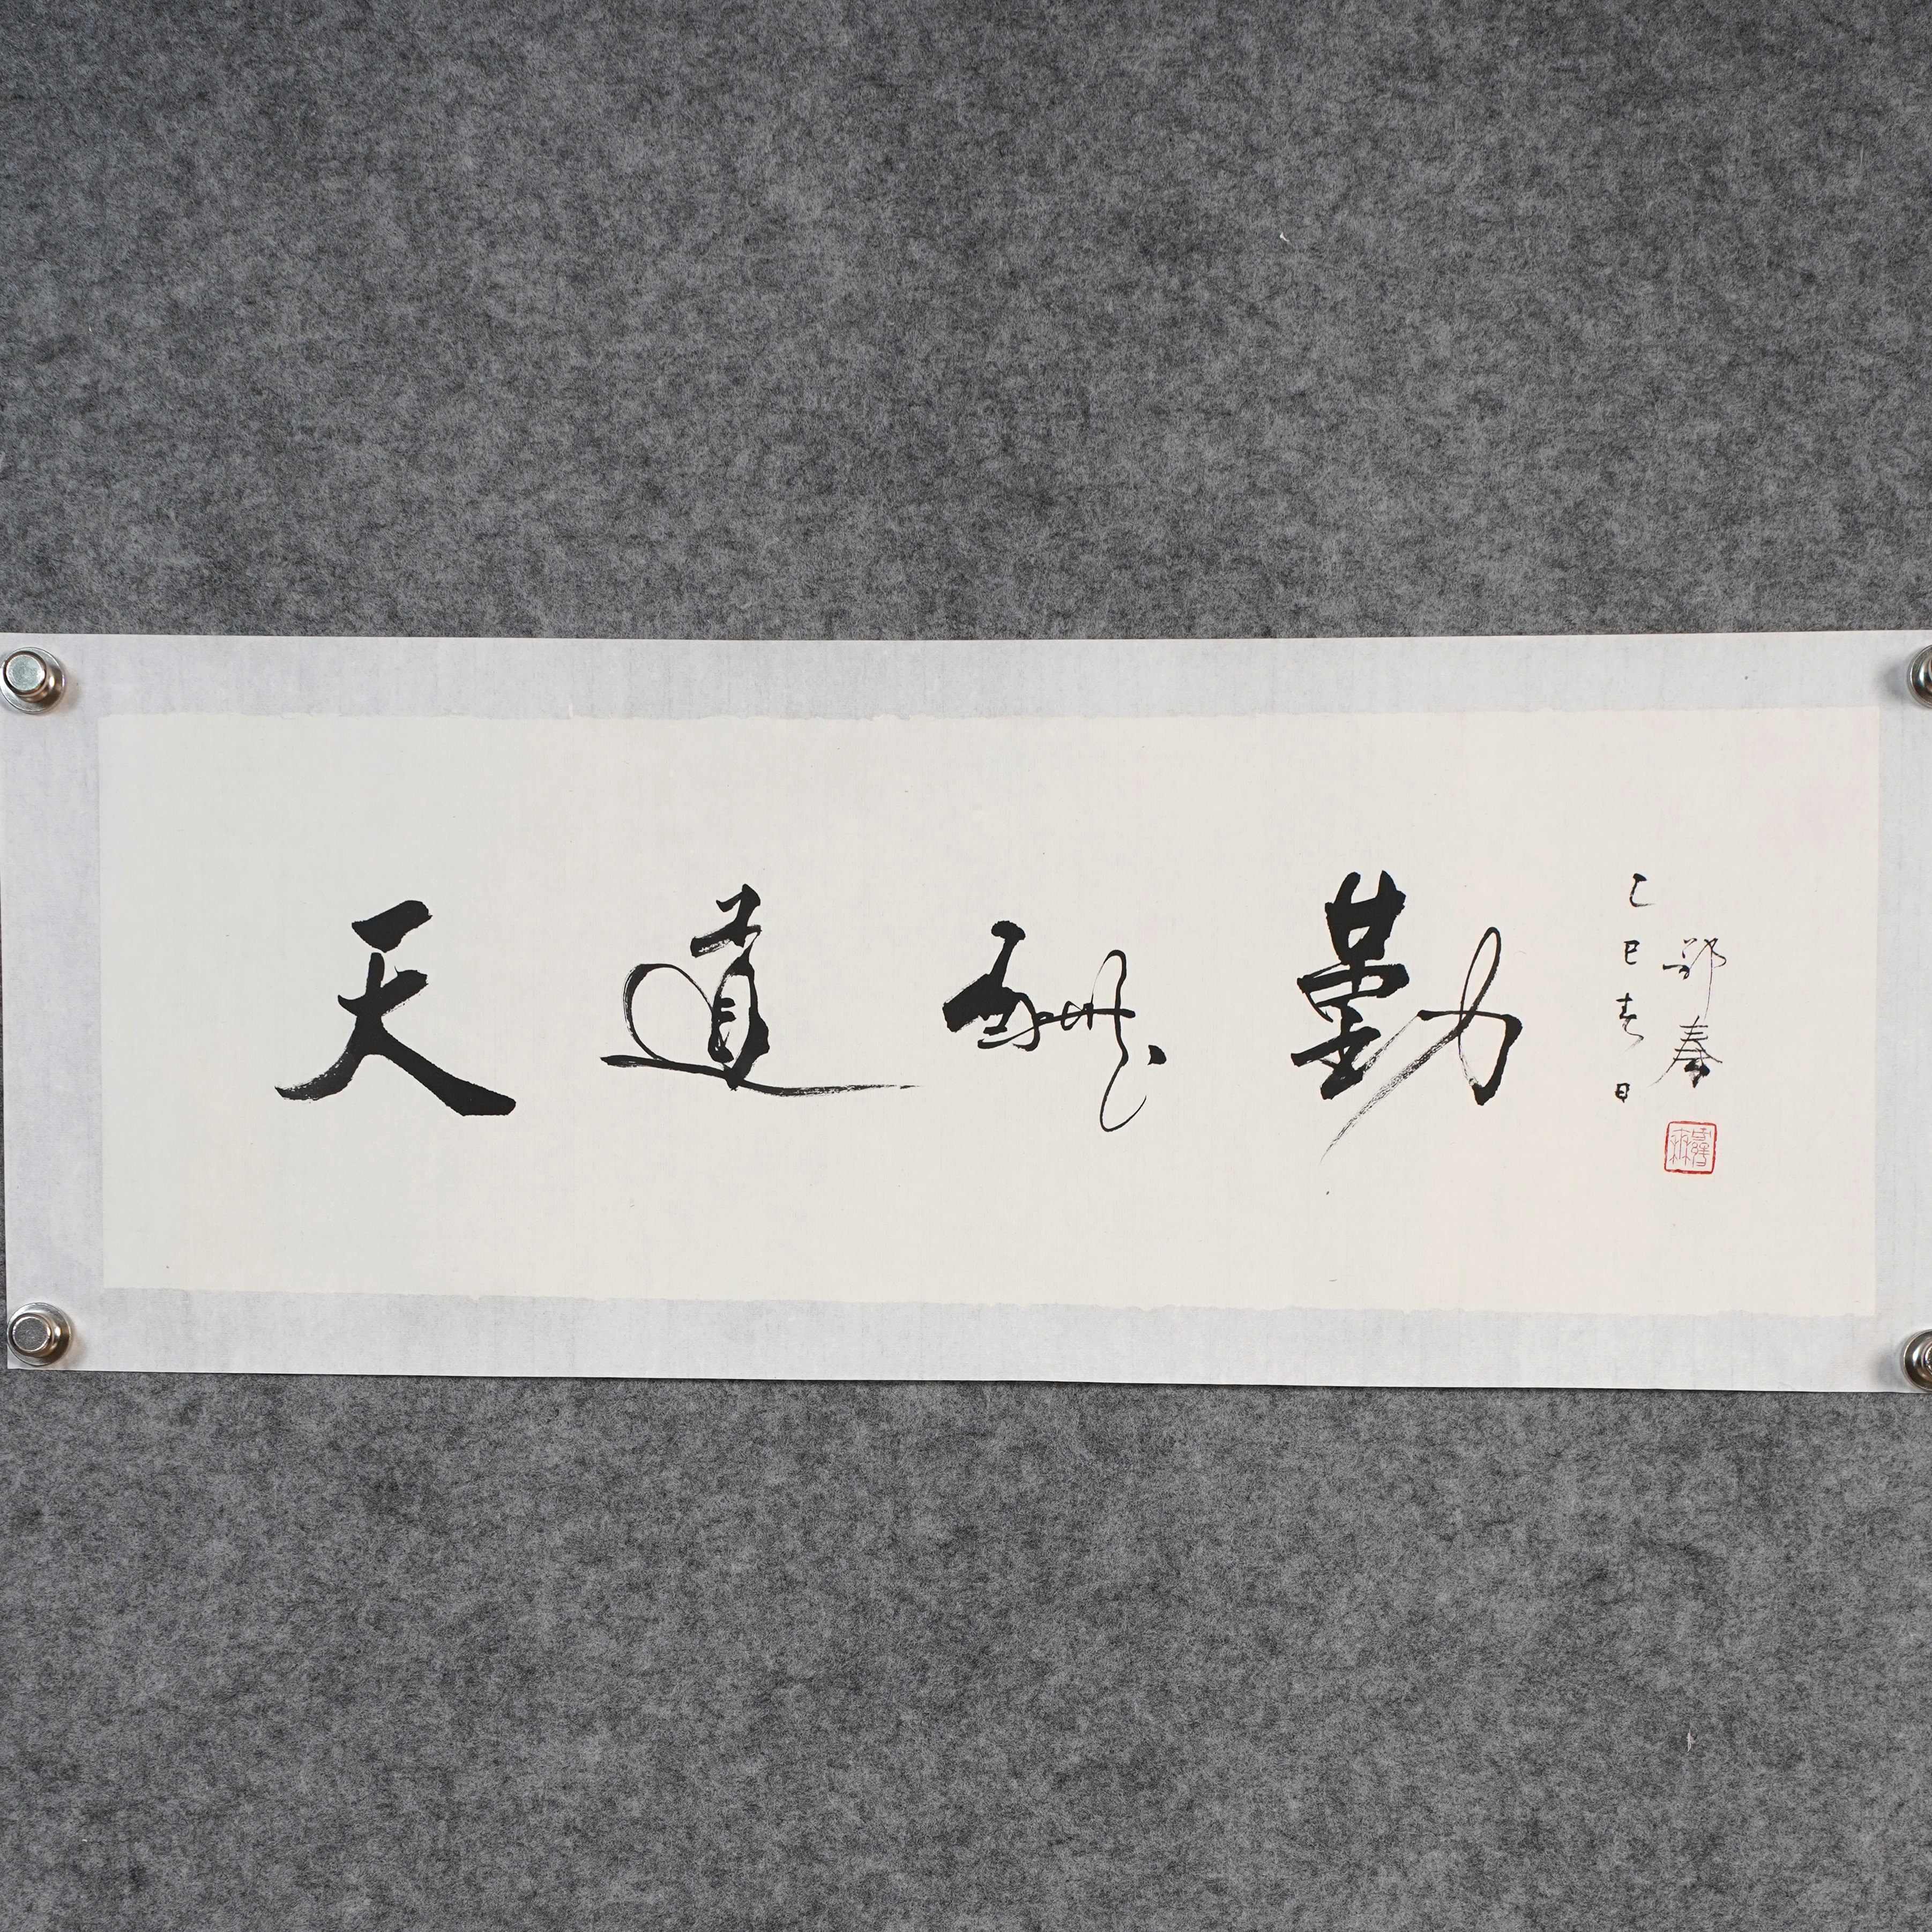 天道酬勤
乙巳春日